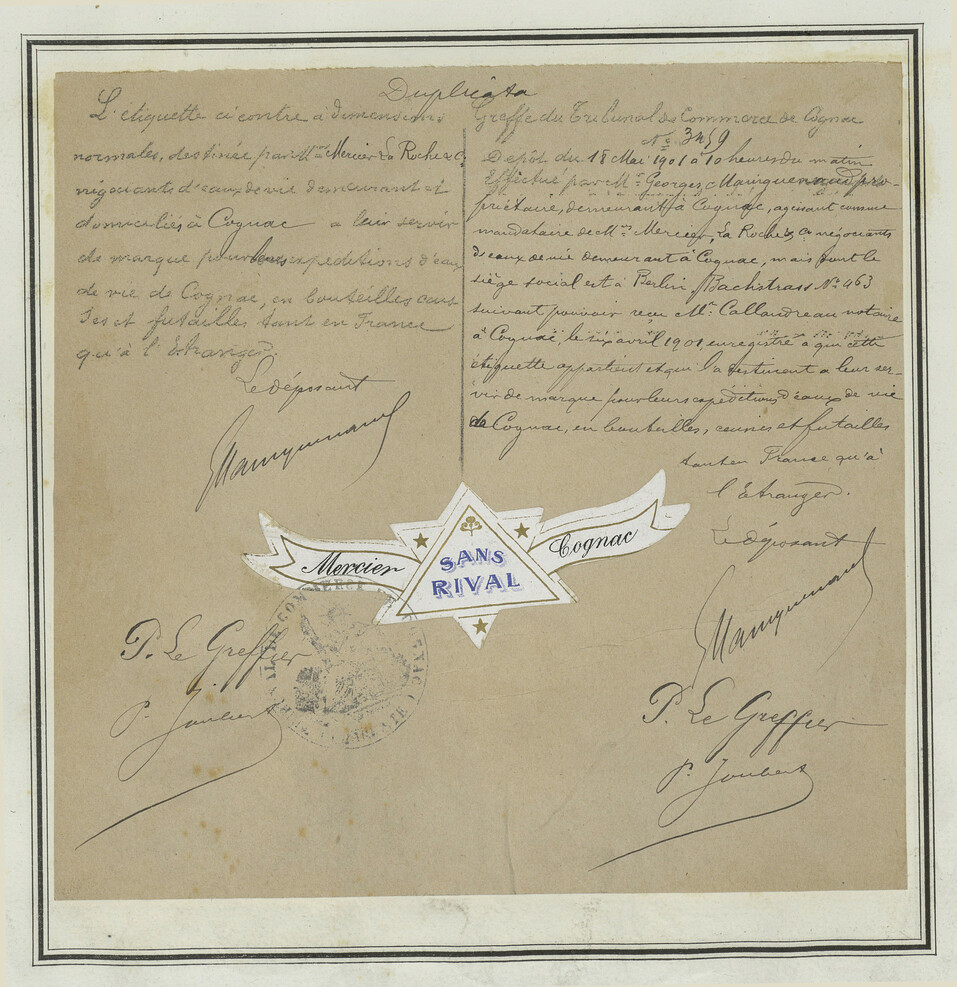 Duplicata
L'étiquette ci contre à dimensions
normales, destinée par M.rs Mercier, La Roche & Cie
négociants d'eaux de vie demeurant et
domiciliés à Cognac a leur servir
de marque pour leurs expéditions d'eaux
de vie de Cognac, en bouteilles, cais-
ses et futailles tant en France
qu'à l'Etranger.
Le déposant
Greffe du Tribunal de Commerce de Cognac
No. 3459
Dépôt du 18 Mai 1901 à 10 heures du matin
Effectué par Mr. Georges Mainguenaud pro-
priétaire, demeurant à Cognac, agissant comme
mandataire de M.rs Mercier, La Roche & Cie négociants
d'eaux de vie demeurant à Cognac, mais dont le
siège social est à Berlin, Bachstrass No 463
suivant pouvoir reçu Mr. Callandreau notaire
à Cognac, le six avril 1901, enregistré à qui cette
étiquette appartient et qui la destinent a leur ser-
vir de marque pour leurs expéditions d'eaux de vie
de Cognac, en bouteilles, caisses et futailles
tant en France qu'à
l'Etranger.
Le déposant
Mainguenaud
Mainguenaud
Mercier
SANS
RIVAL
Cognac
P. Le Greffier
P. Joubert
P. Le Greffier
P. Joubert